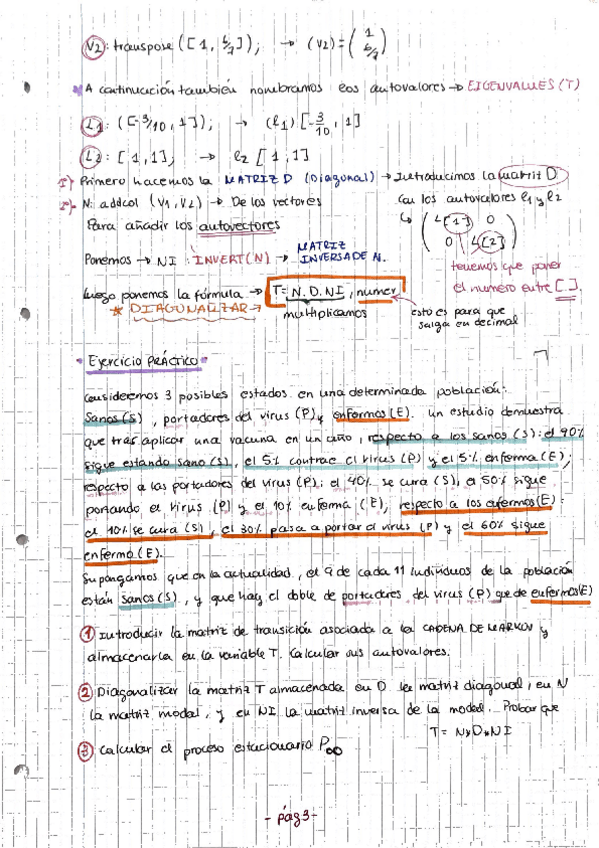 V2: transpose ([1, 6/7]); → (V2) = (1 6/7)
* A continuación también nombramos los autovalores → EIGENVALUES (T)
L1: ([-3/10, 1]); → (l1) [-3/10, 1]
L2: [1, 1]; → l2 [1, 1]
1)- Primero hacemos la MATRIZ D (Diagonal) → Introducimos la matriz D
Con los autovalores l1 y l2
2)- N: addcol (V1, V2) → De los vectores
Para añadir los autovectores
↳ (L[1] 0
0 L[2])
Ponemos → NI: INVERT(N) → MATRIZ INVERSA DE N.
tenemos que poner
el numero entre [ ].
luego ponemos la fórmula → T = N. D. NI, numer
* DIAGONALIZAR →
multiplicamos
esto es para que
salga en decimal
• Ejercicio PRÁCTICO •
Consideremos 3 posibles estados en una determinada población:
Sanos (S), portadores del virus (P) y enfermos (E). Un estudio demuestra
que tras aplicar una vacuna en un año, respecto a los sanos (S): el 90%
sigue estando sano (S), el 5% contrae el virus (P) y el 5% enferma (E),
respecto a las portadores del virus (P): el 40% se cura (S), el 50% sigue
portando el virus (P) y el 10% enferma (E), respecto a los enfermos (E):
el 10% se cura (S), el 30% pasa a portar el virus (P) y el 60% sigue
enfermo (E).
Supongamos que en la actualidad, el 9 de cada 11 individuos de la población
están sanos (S), y que hay el doble de portadores del virus (P) que de enfermos (E)
① Introducir la matriz de transición asociada a la CADENA DE MARKOV y
almacenarla en la variable T. Calcular sus autovalores.
② Diagonalizar la matriz T almacenada en D la matriz diagonal, en N
la matriz modal, y en NI la matriz inversa de la modal. Probar que
T = N*D*NI
③ Calcular el proceso estacionario P∞
- pág 3 -